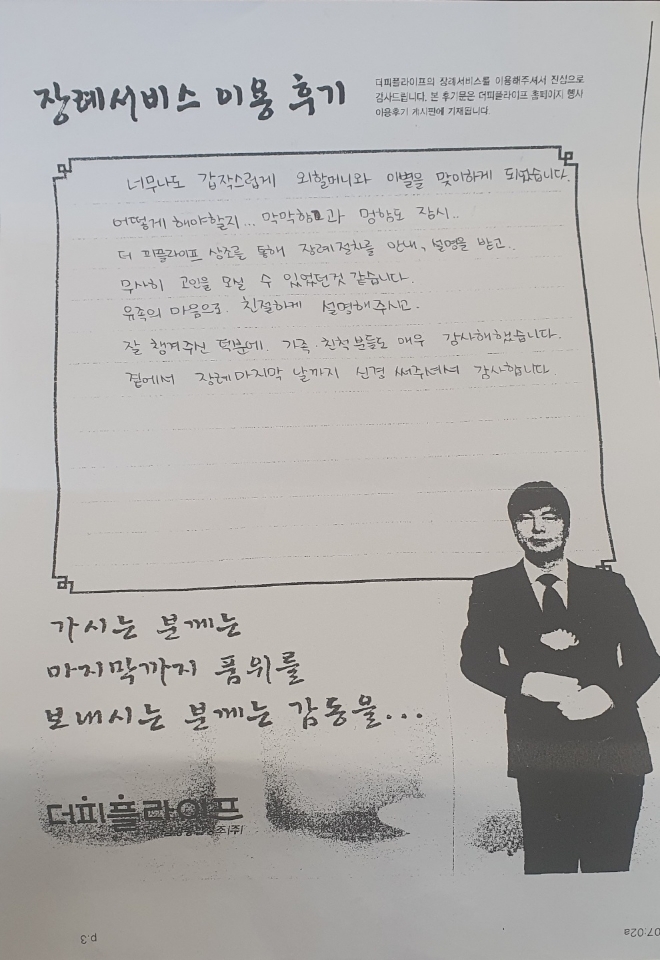 장례서비스 이용 후기
더피플라이프의 장례서비스를 이용해주셔서 진심으로
감사드립니다. 본 후기문은 더피플라이프 홈페이지 행사
이용후기 게시판에 기재됩니다.
너무나도 갑작스럽게 외할머니와 이별을 맞이하게 되었습니다.
어떻게 해야할지... 막막함과 멍함도 잠시..
더 피플라이프 상조를 통해 장례절차를 안내, 설명을 받고..
무사히 고인을 모실 수 있었던것 같습니다.
유족의 마음으로. 친절하게 설명해주시고.
잘 챙겨주신 덕분에. 가족·친척분들도 매우 감사해했습니다.
곁에서 장례마지막 날까지 신경 써주셔서 감사합니다.
가시는 분께는
마지막까지 품위를
보내시는 분께는 감동을...
더피플라이프
상조(주)
p.3
07:02a